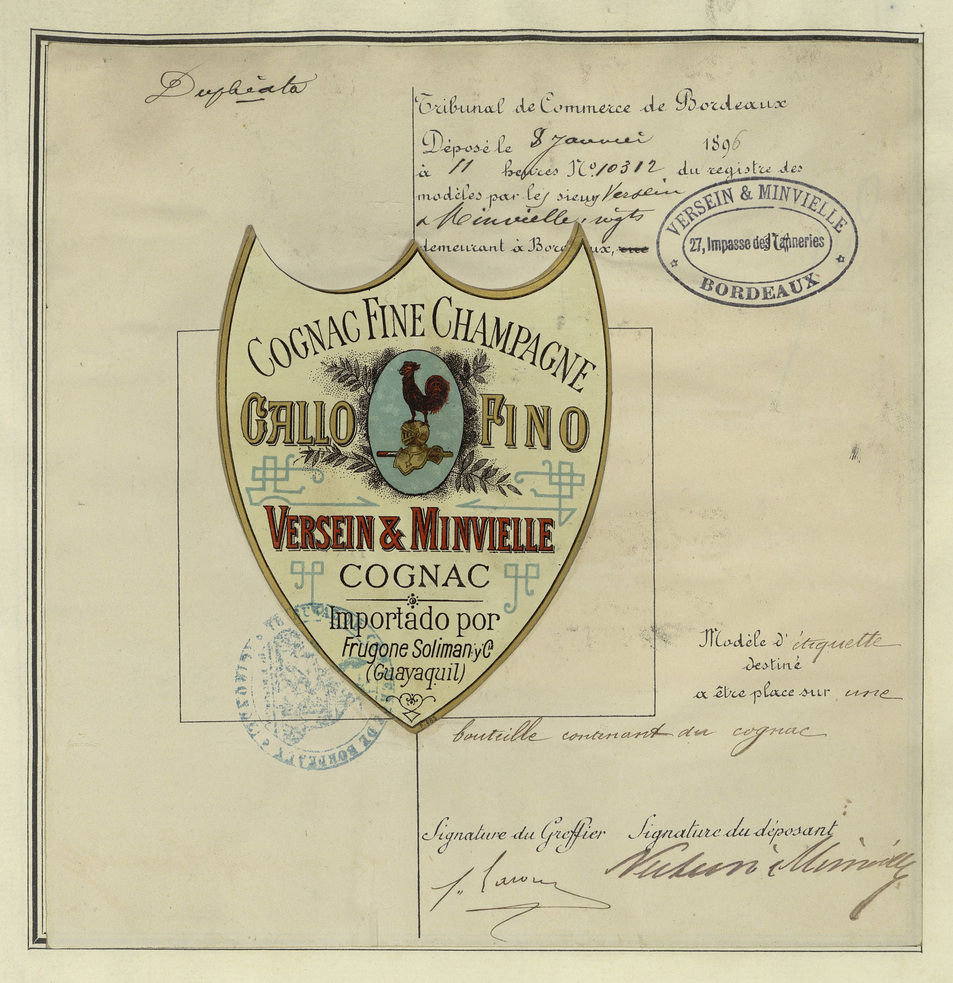 Duplicata
Tribunal de Commerce de Bordeaux
Déposé le 8 janvier 1896
à 11 heures No 10312 du registre des
modèles par les sieurs Versein
& Minvielle, négts
demeurant à Bordeaux, rue
VERSEIN & MINVIELLE
27, Impasse des Tanneries
BORDEAUX
COGNAC FINE CHAMPAGNE
GALLO FINO
VERSEIN & MINVIELLE
COGNAC
Importado por
Frugone Soliman y Ca
(Guayaquil)
Modèle d'étiquette
destiné
a être place sur une
bouteille contenant du cognac
DE BORDEAUX
Signature du Greffier Signature du déposant
Versein & Minvielle